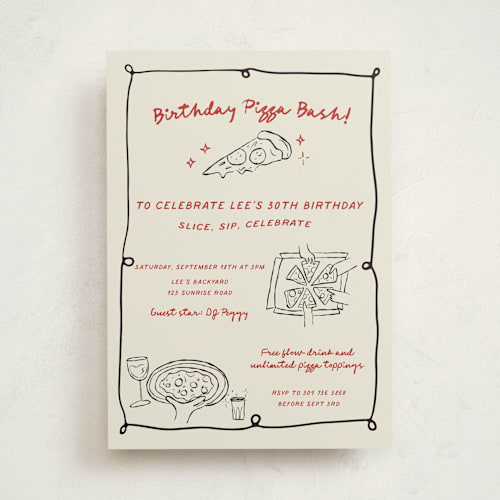 Birthday Pizza Bash!
TO CELEBRATE LEE'S 30TH BIRTHDAY
SLICE, SIP, CELEBRATE
SATURDAY, SEPTEMBER 18TH AT 3PM
LEE'S BACKYARD
123 SUNRISE ROAD
Guest star: DJ Peggy
Free flow drink and
unlimited pizza toppings
RSVP TO 301 735 3858
BEFORE SEPT 3RD